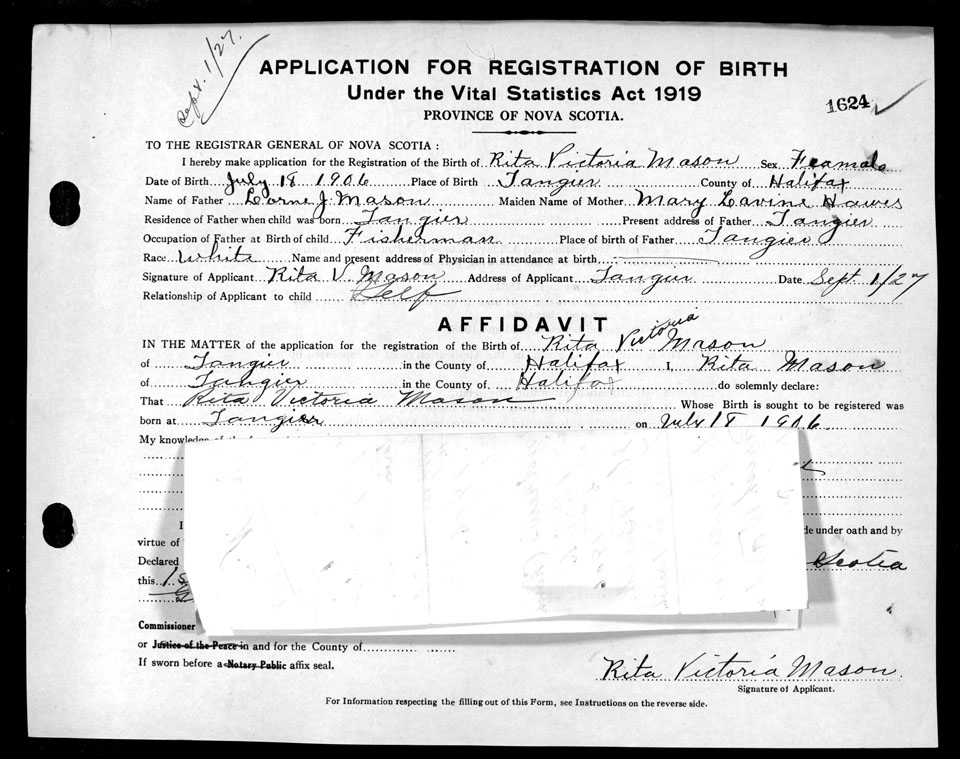 Sept. 1/27.
APPLICATION FOR REGISTRATION OF BIRTH
Under the Vital Statistics Act 1919
PROVINCE OF NOVA SCOTIA.
1624
TO THE REGISTRAR GENERAL OF NOVA SCOTIA :
I hereby make application for the Registration of the Birth of Rita Victoria Mason Sex Feamale
Date of Birth July 18 1906 Place of Birth Tangier County of Halifax
Name of Father Lorne J. Mason Maiden Name of Mother Mary Lavine Hawes
Residence of Father when child was born Tangier Present address of Father Tangier
Occupation of Father at Birth of child Fisherman Place of birth of Father Tangier
Race White Name and present address of Physician in attendance at birth
Signature of Applicant Rita V. Mason Address of Applicant Tangier Date Sept 1/27
Relationship of Applicant to child Self
AFFIDAVIT
IN THE MATTER of the application for the registration of the Birth of Rita Victoria Mason
of Tangier in the County of Halifax I, Rita Mason
of Tangier in the County of Halifax do solemnly declare:
That Rita Victoria Mason Whose Birth is sought to be registered was
born at Tangier on July 18 1906
My knowledge of
I
de under oath and by
virtue of
Declared Scotia
this
Commissioner
or Justice of the Peace in and for the County of
If sworn before a Notary Public affix seal.
Rita Victoria Mason.
Signature of Applicant.
For Information respecting the filling out of this Form, see Instructions on the reverse side.